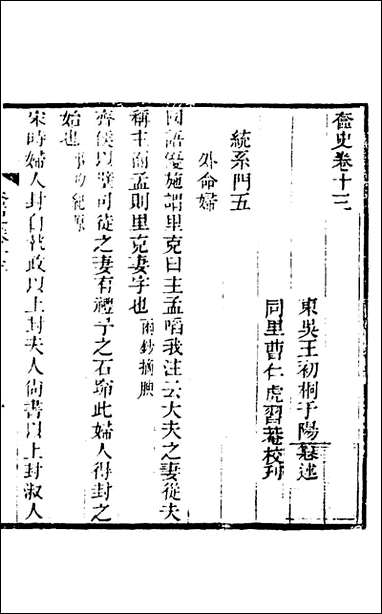 奩史卷十三
東吳王初桐于陽纂述
同里曹仁虎習菴校刋
統系門五
外命婦
國語優施謂里克曰主孟啗我注云大夫之妻從夫
稱主而孟則里克妻字也雨鈔摘腴
齊侯以辟司徒之妻有禮予之石窌此婦人得封之
始也事物紀原
宋時婦人封自執政以上封夫人尚書以上封淑人